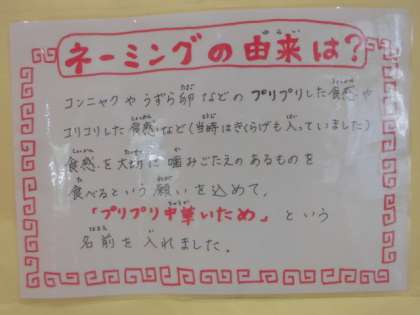 ネーミングの由来は?
コンニャクやうずら卵などのプリプリした食感や
コリコリした食感など(当時はきくらげも入っていました)
食感を大切に噛みごたえのあるものを
食べるという願いを込めて、
「プリプリ中華いため」という
名前を入れました。